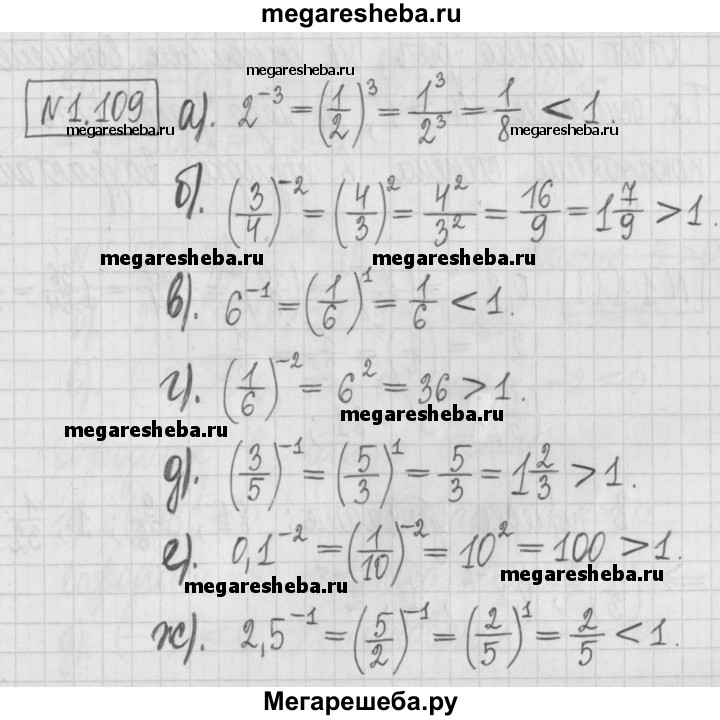 megaresheba.ru
megaresheba.ru
N 1.109 а). 2⁻³ = (1/2)³ = 1³/2³ = 1/8 < 1.
megaresheba.ru megaresheba.ru
б). (3/4)⁻² = (4/3)² = 4²/3² = 16/9 = 1 7/9 > 1.
megaresheba.ru megaresheba.ru
в). 6⁻¹ = (1/6)¹ = 1/6 < 1.
г). (1/6)⁻² = 6² = 36 > 1.
megaresheba.ru megaresheba.ru
д). (3/5)⁻¹ = (5/3)¹ = 5/3 = 1 2/3 > 1.
е). 0,1⁻² = (1/10)⁻² = 10² = 100 > 1.
megaresheba.ru megaresheba.ru
ж). 2,5⁻¹ = (5/2)⁻¹ = (2/5)¹ = 2/5 < 1.
Мегарешеба.ру